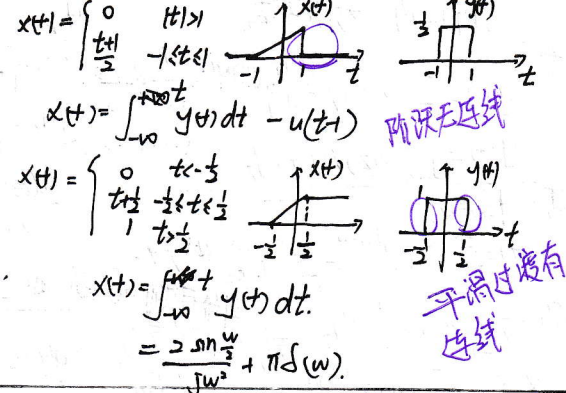 x(t)= { 0 |t|>1
t+1/2 -1≤t≤1
x(t)
-1 1 t
y(t)
1/2
-1 1 t
x(t)= ∫_{-∞}^{t} y(t) dt - u(t-1)
阶跃无连线
x(t)= { 0 t<-1/2
t+1/2 -1/2≤t≤1/2
1 t>1/2
x(t)
-1/2 1/2
y(t)
1
-1/2 1/2 t
x(t)= ∫_{-∞}^{t} y(t) dt.
= 2 sin w/2 / jw² + πδ(w).
平滑过渡有
连线